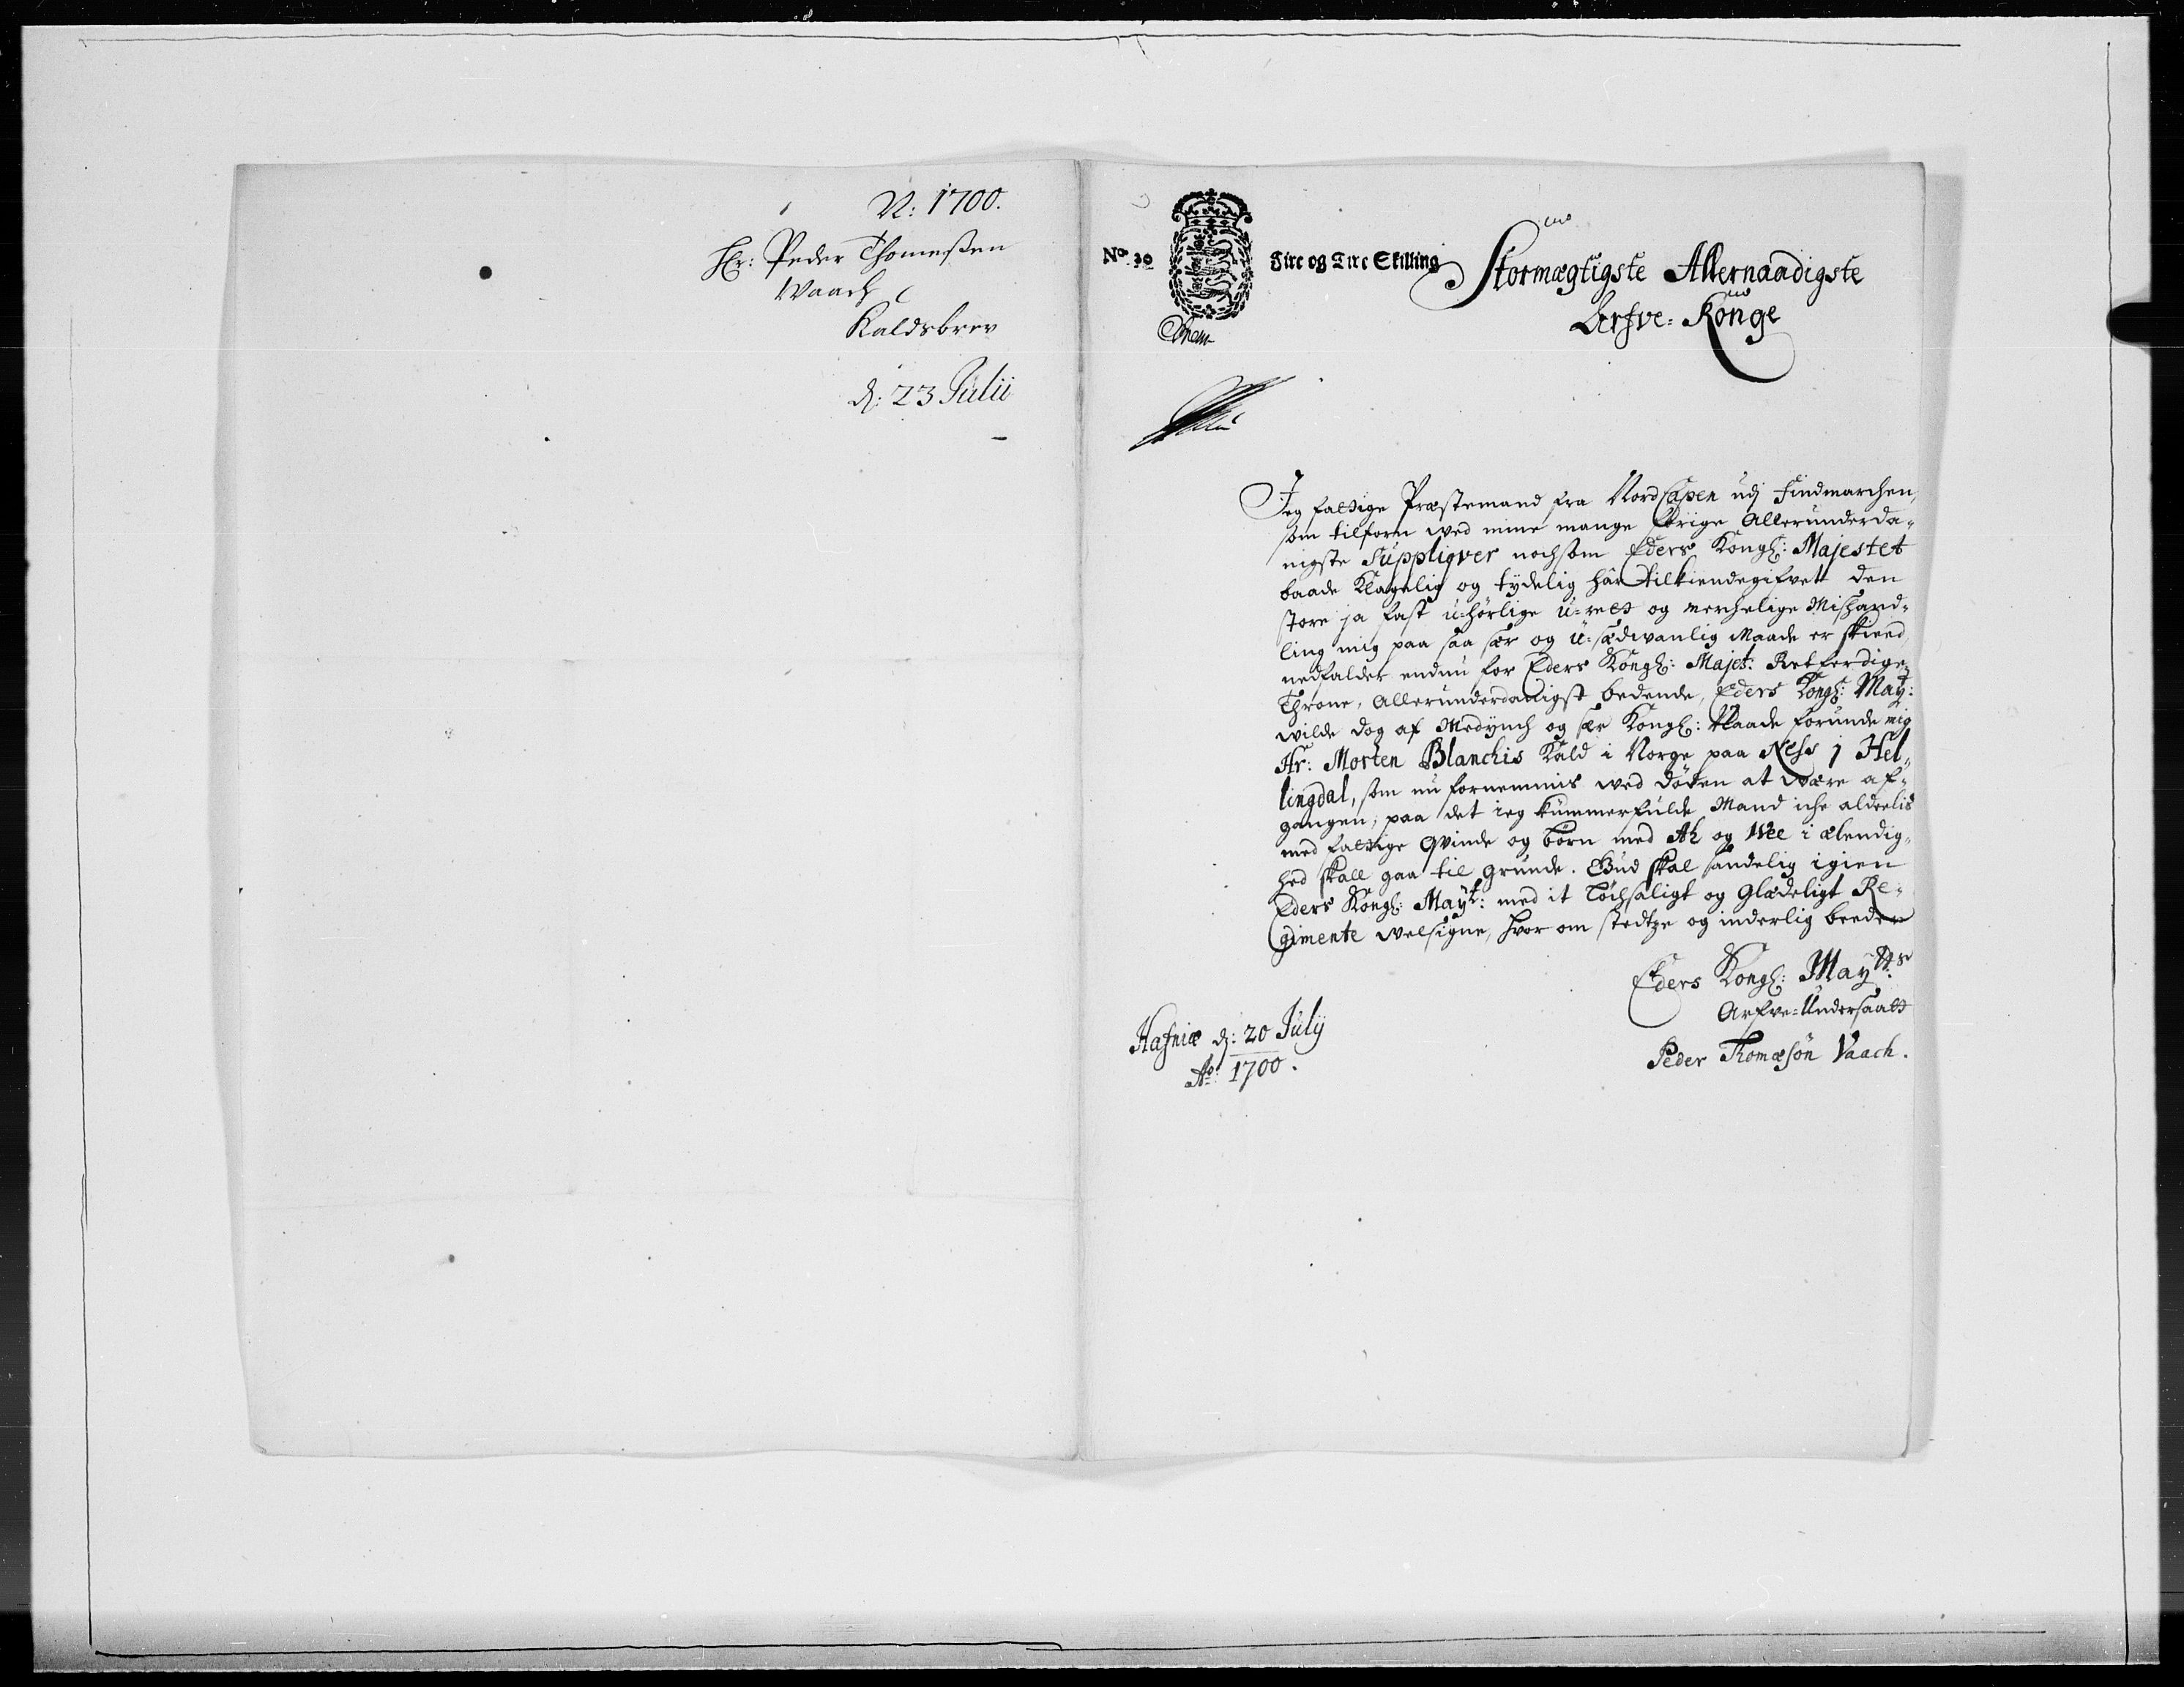 N: 1700.
Hr: Peder Thomeßen
Waach
Kaldsbrev
d: 23 Julii
No. 30
Fire og Tive Skilling
Stormægtigste Allernaadigste
Arfve-Konge
Jeg fattige Præstemand fra NordCapen udj Findmarchen,
som tilforn ved mine mange Allerunderda-
nigste Suppliqver nochsom Eders Kongl: Majestet
baade Klagelig og tydelig har tilkiendegifvet den
store ja fast u-hørlige u-ret og merchelige Mishand-
ling mig paa saa sær og u-sædvanlig Maade er skeed,
nedfalder endnu for Eders Kongl: Majet. Retferdige
Throne, Allerunderdanigst bedende, Eders Kongl: Mayt:
wilde dog af Medynch og sær Kongl: Naade forunde mig
Hr: Morten Blanchis Kald i Norge paa Ness j Hel-
lingdal, som nu fornemmis ved døden at være af-
gangen; paa det ieg kummerfulde Mand iche aldeelis
med fattige Qvinde og børn med Ah og Wee i ælendig-
hed skall gaa til grunde. Gud skal sandelig igien
Eders Kongl: Mayt: med it Løchsaligt og Glædeligt Re-
gimente velsigne, hvor om stedtze og inderlig beeder
Eders Kongl: Maytts
Arfve-Undersaatt
Hafniæ d: 20 Julij
Ao 1700.
Peder Thomæsøn Vaach.